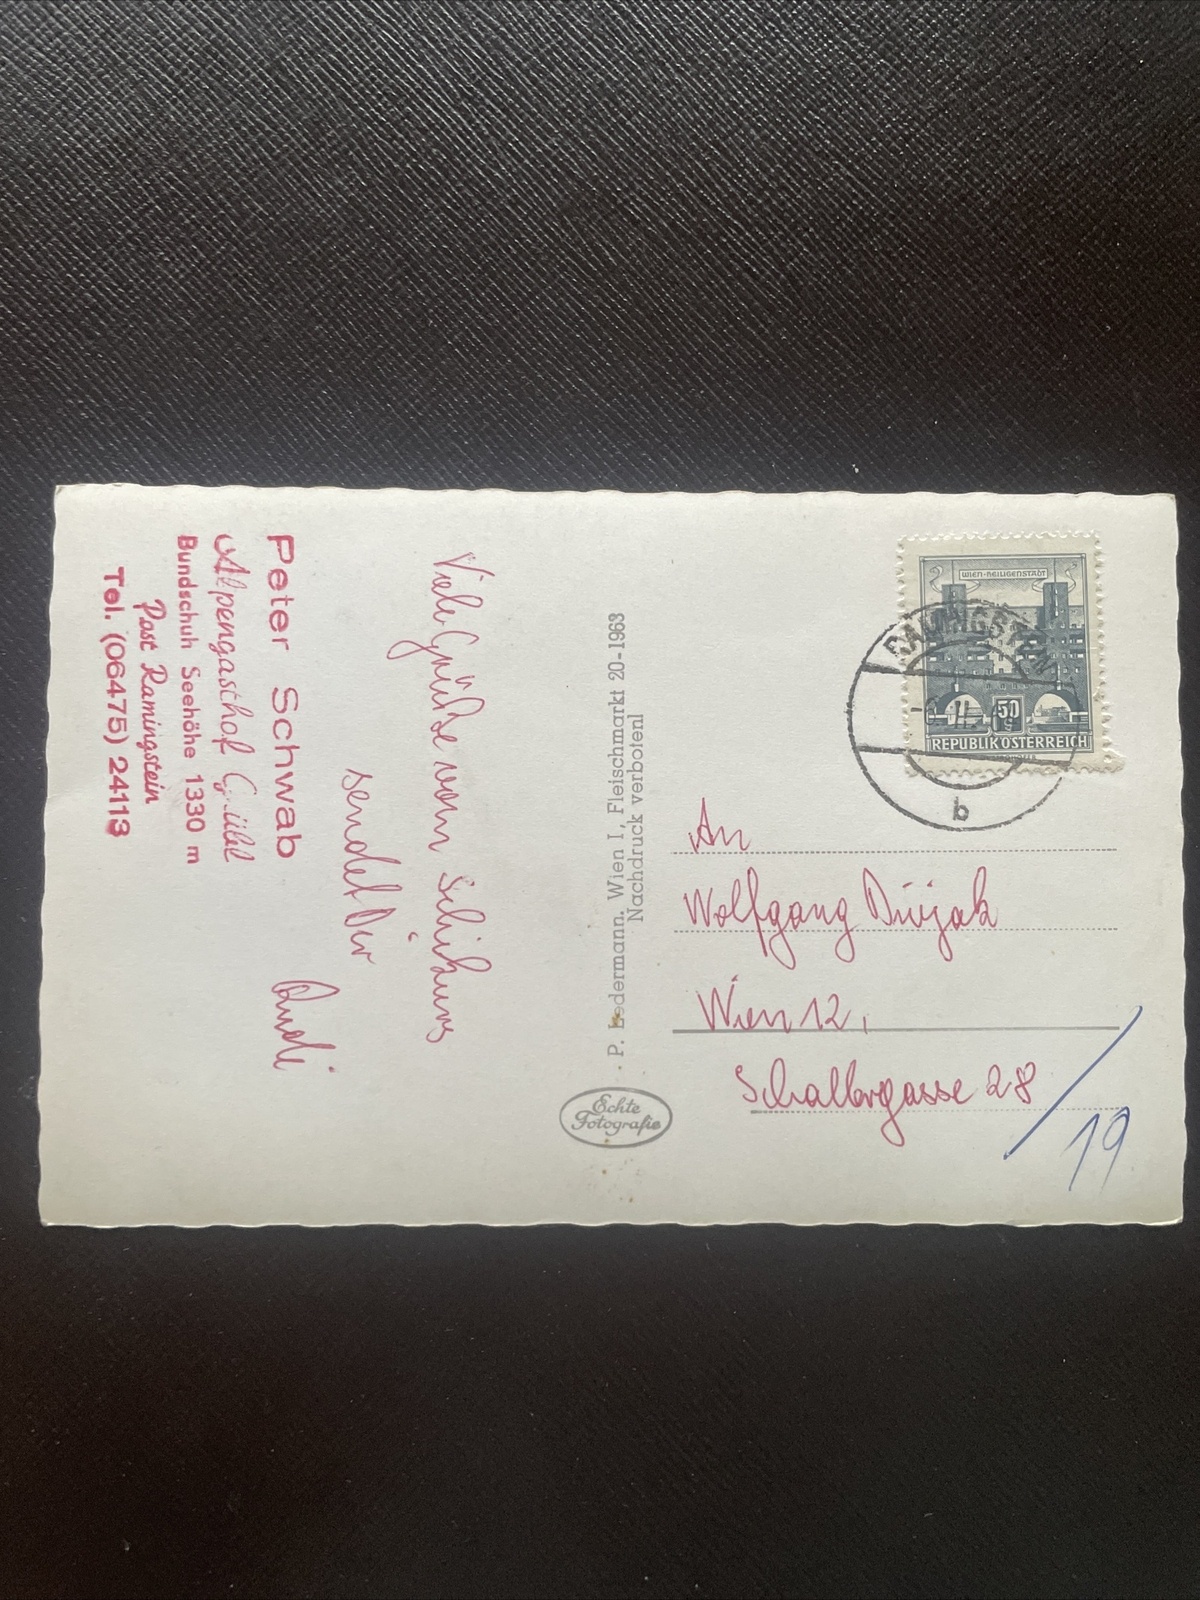 Viele Grüße vom Schikurs
sendet Dir
Rudi
Peter Schwab
Alpengasthof
Bundschuh Seehöhe 1330 m
Post Ramingstein
Tel. (06475) 24113
P. Ledermann, Wien I, Fleischmarkt 20-1963
Nachdruck verboten!
Echte
Fotografie
WIEN-HEILIGENSTADT
50
REPUBLIK ÖSTERREICH
RAMINGSTEIN
b
An
Wolfgang
Wien 12,
Schallergasse 28
19